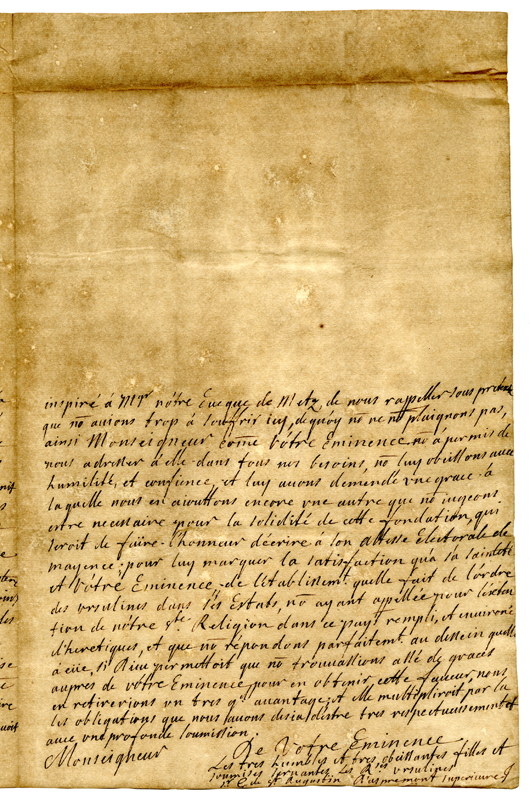 inspiré á Mgr nôtre Eueque de Metz de nous rappeller sous pretexte
que nõ auions trop à souffrir icy, dequoy nõ ne nõ plaignons pas,
ainsi Monseigneur come vôtre Eminence nõ à permis de
nous adresser á elle dans tous nos besoins, nõ luy obeissons auec
humilité, et confience, et luy auons demendé vne grace á
laquelle nous en aiouttons encore vne autre que nõ iugeons
estre necessaire pour la solidité de cette fondation, qui
seroit de faire lhonneur décrire à son altesse Electorale de
mayence pour luy marquer la satisfaction quà sa sainteté
et vôtre Eminence de letablissemt quelle fait de lordre
des vrsulines dans ses Estats, nõ ayant appellée pour lexten
tion de nôtre ste Religion dans ce pays rempli, et enuironé
dheretiques, et que nõ répondons parfaitemt au dessein quelle
à eüe, si Dieu permettoit que nõ trouuassions allé de graces
aupres de vôtre Eminence pour en obtenir cette faueur, nous
en retirerions un tres gd auantage, et Elle multipliroit par la
les obligations que nous lauons desia, destre tres respectueusement et
auec vne profonde soumission
Monseigneur
De Votre Eminence
Les tres humbles et tres obeissantes filles et
soumises seruantes Les Rses vrsulines
St C. de St Augustin Daspremont superieure